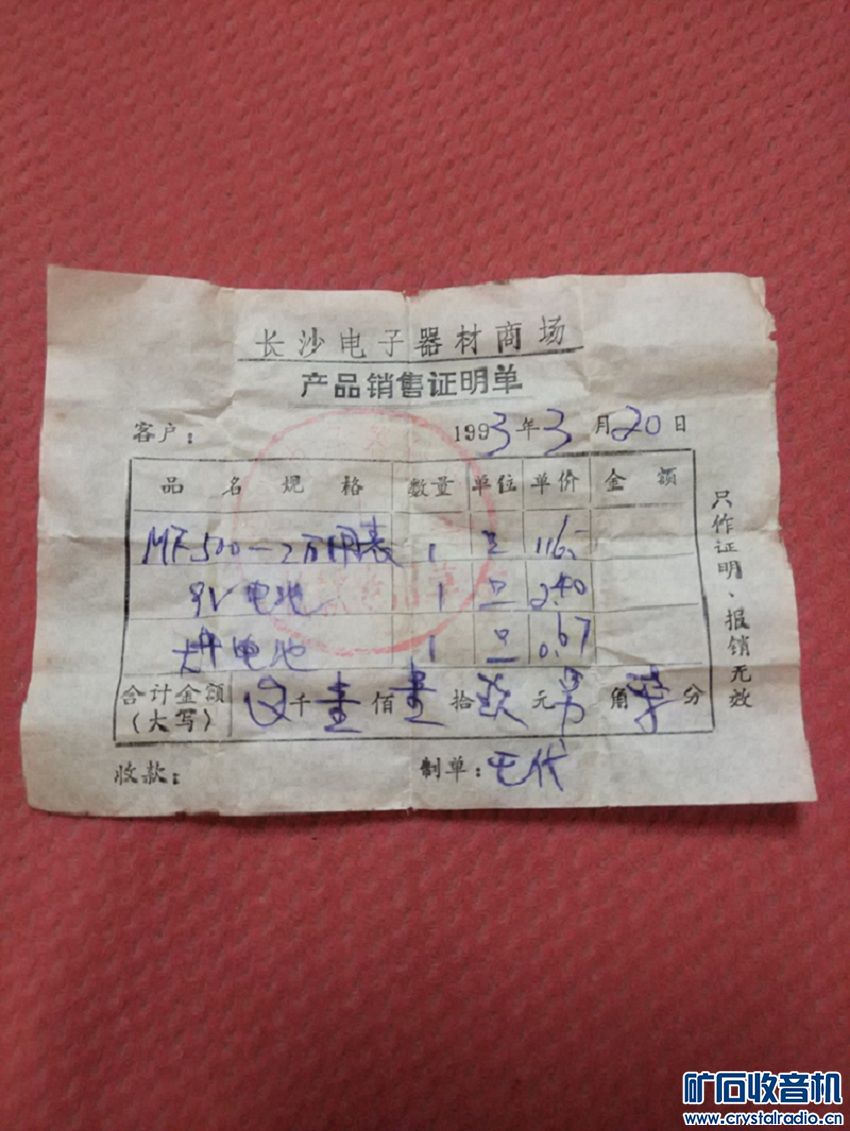 长沙电子器材商场
产品销售证明单
客户： 1993年3月20日
品名规格 数量 单位 单价 金额
MF500-2万用表 1 116
9V电池 1 只 2.40
大电池 1 只 0.67
合计金额（大写） 千壹佰壹拾 元 角 分
收款： 制单：
只作证明、报销无效
矿石收音机
www.crystalradio.cn